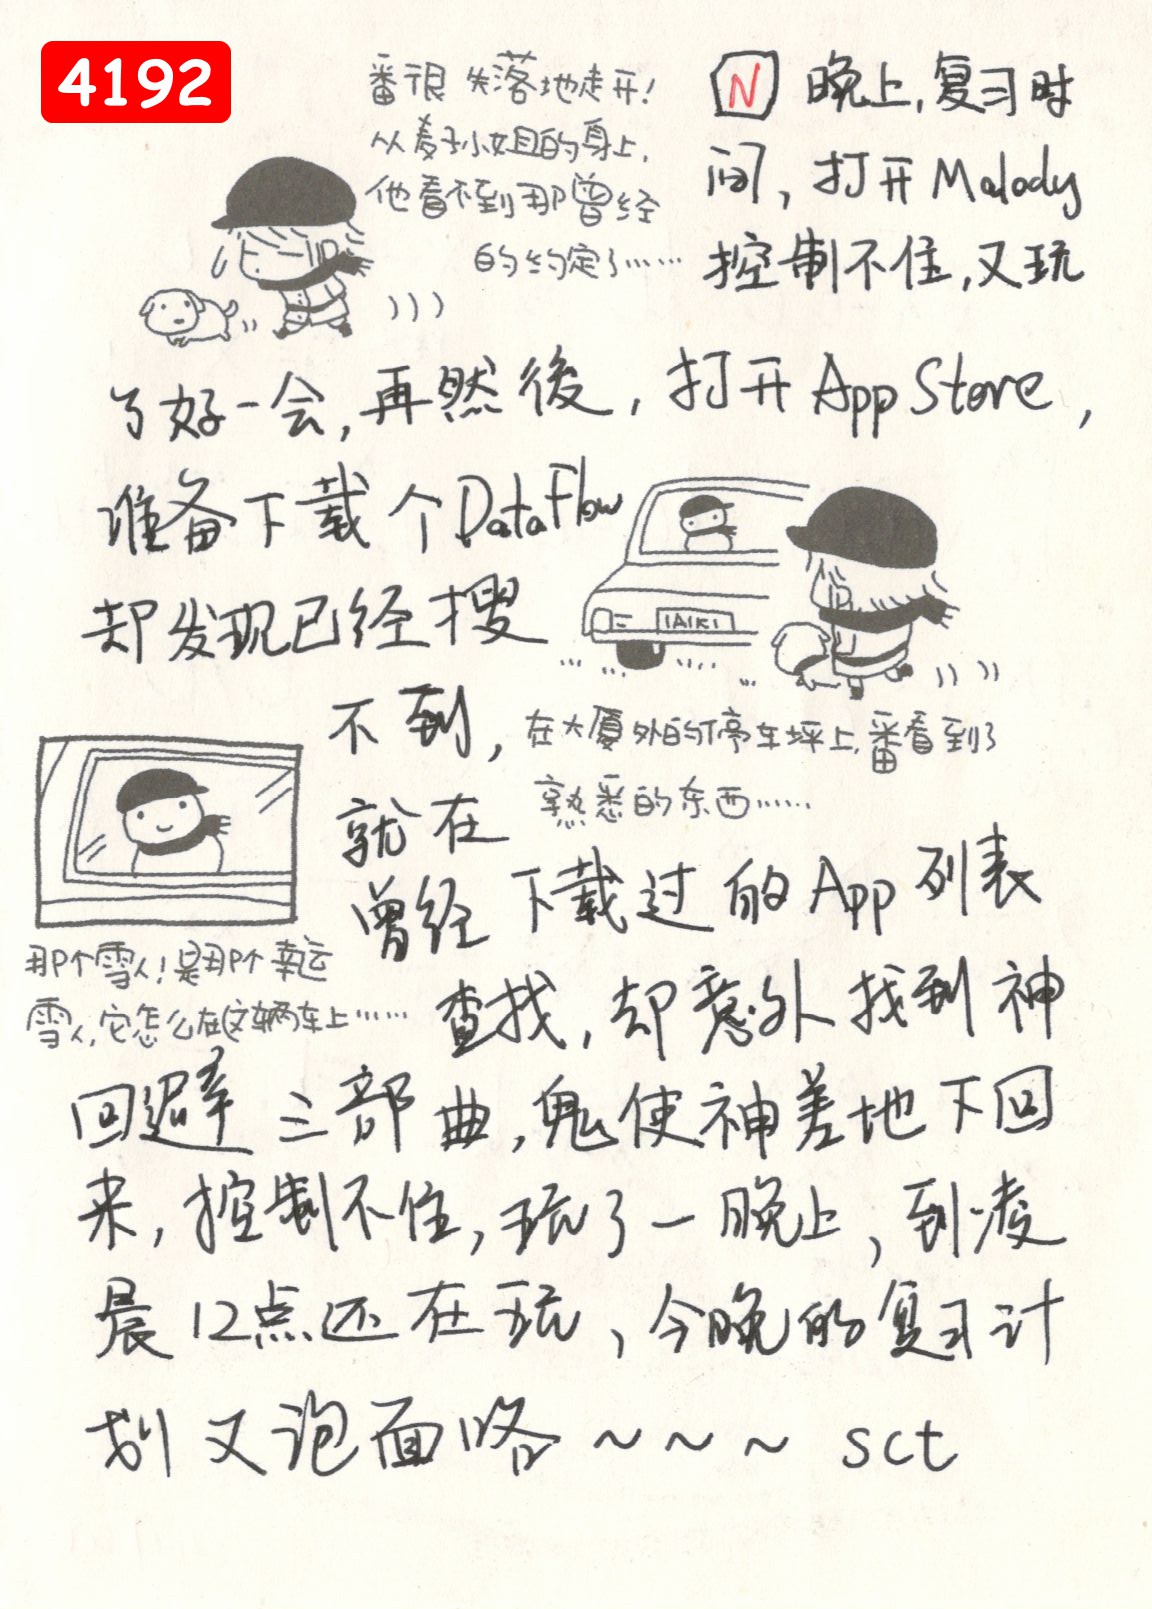 4192
番很失落地走开!
从麦孙小姐的身上,
他看不到那曾经
的约定了……
N 晚上,复习时
间,打开Malody
控制不住,又玩
了好一会,再然後,打开App Store,
准备下载个DataFlow
却发现已经搜
不到,
就在
曾经下载过的App列表
查找,却意外找到神
回避三部曲,鬼使神差地下回
来,控制不住,玩了一晚上,到凌
晨12点还在玩,今晚的复习计
划又泡面咯~~~ sct
IAIKI
在大厦外的停车坪上,番看到了
熟悉的东西……
那个雪人!是那个幸运
雪人,它怎么在这辆车上……